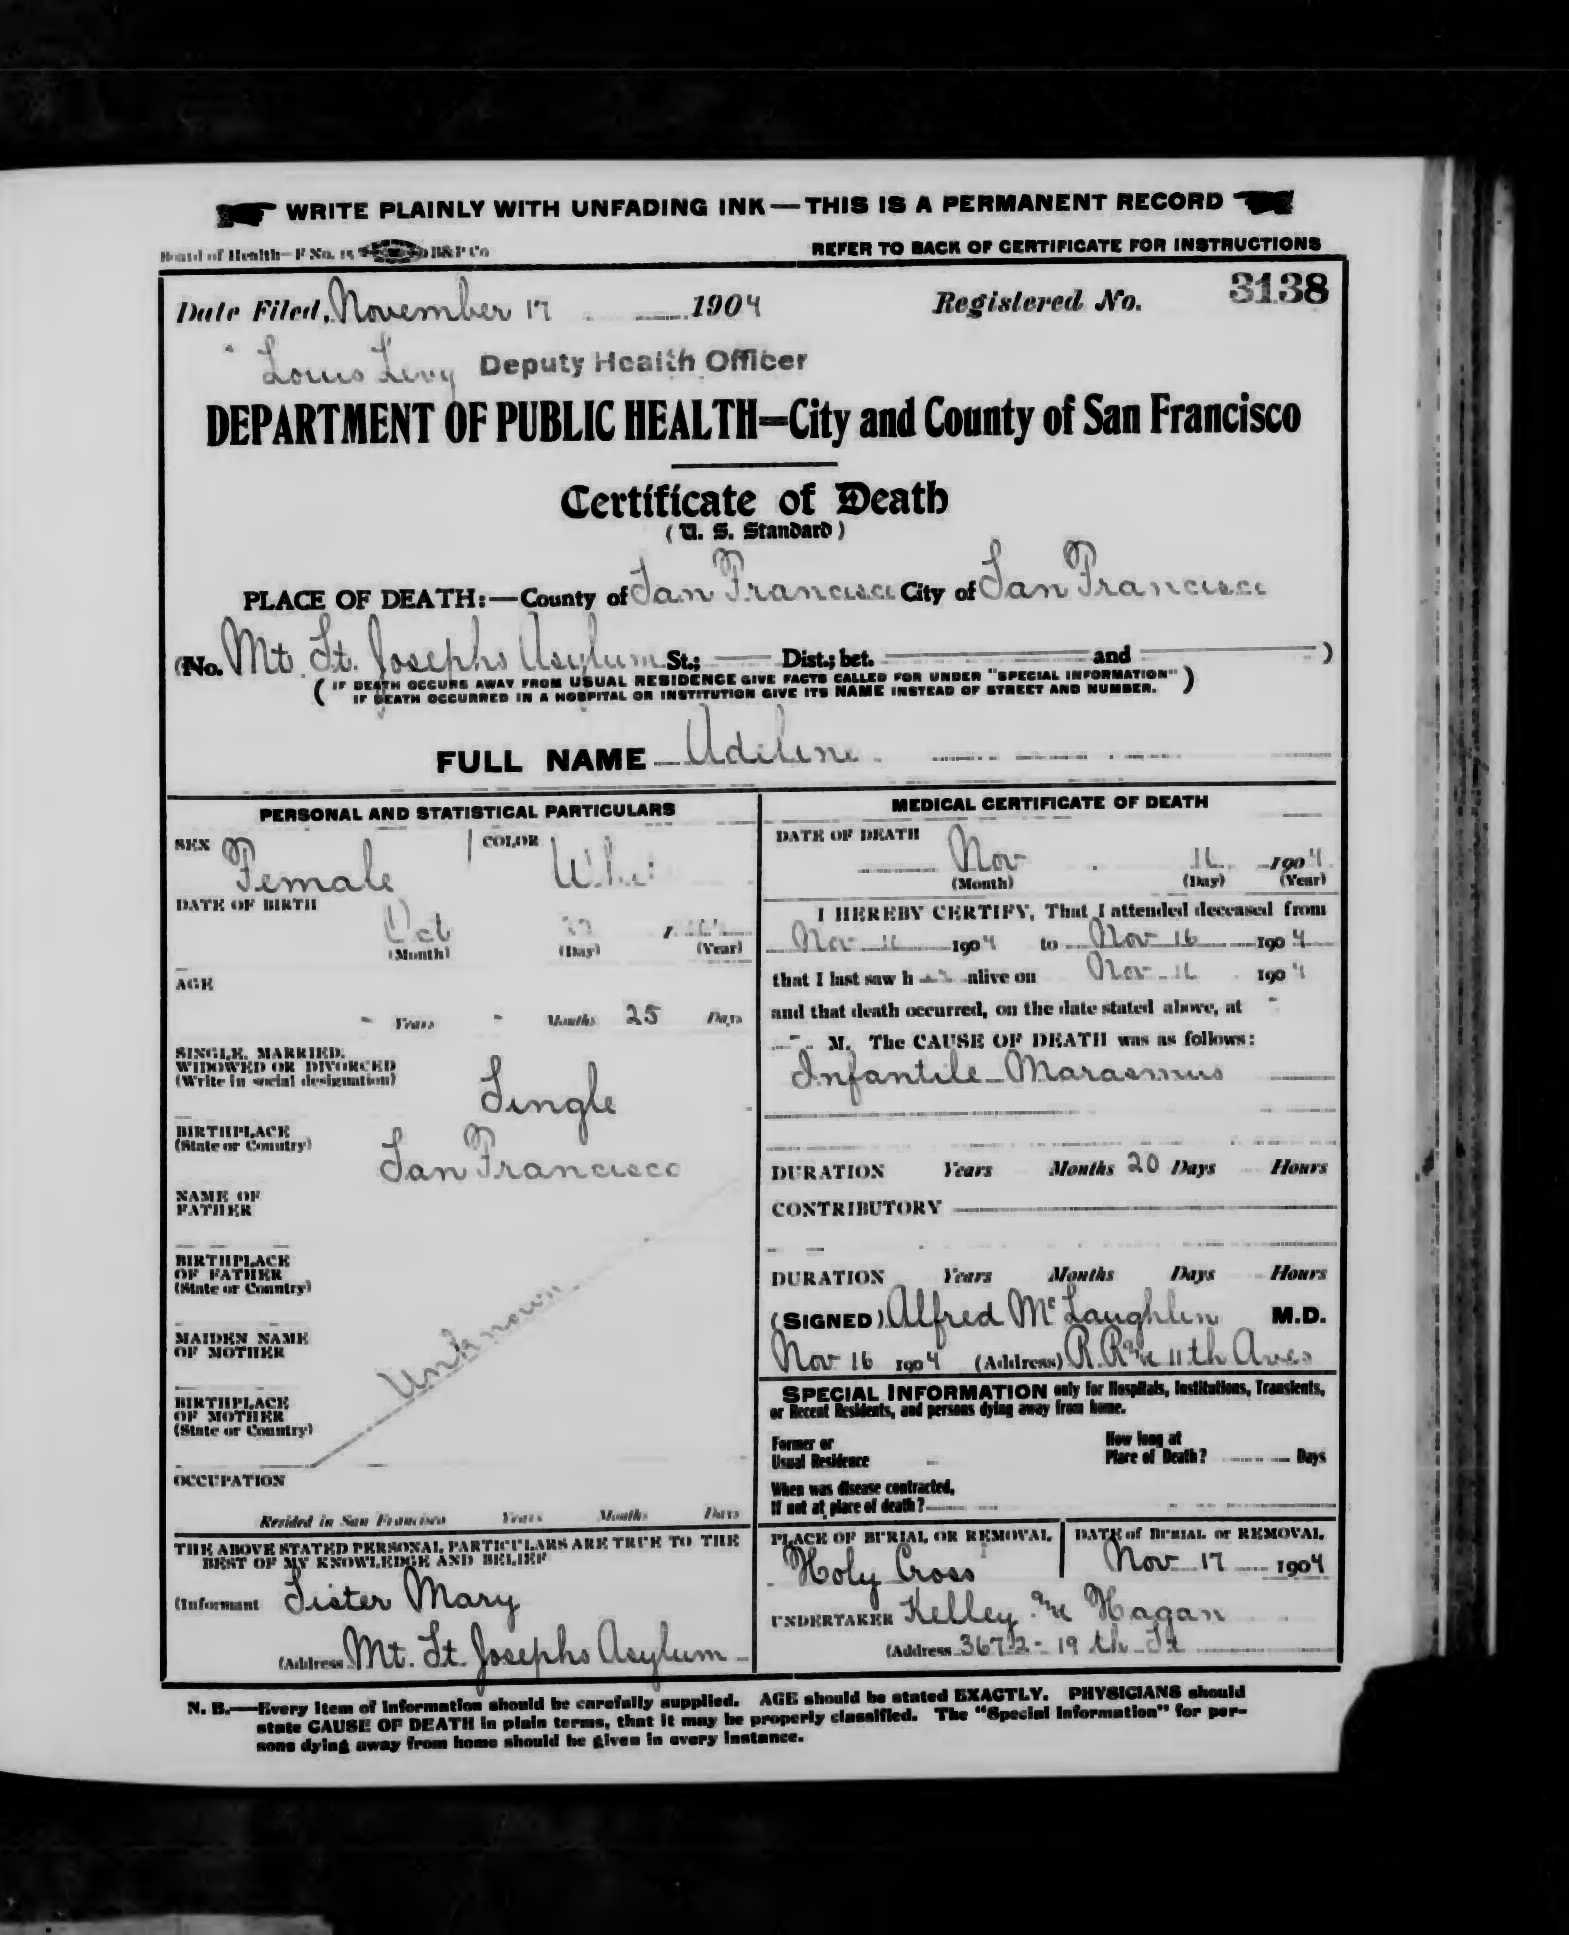 WRITE PLAINLY WITH UNFADING INK—THIS IS A PERMANENT RECORD
Board of Health—F No. 15 B&P Co
REFER TO BACK OF CERTIFICATE FOR INSTRUCTIONS
Date Filed, November 17 1904 Registered No. 3138
Louis Levy Deputy Health Officer
DEPARTMENT OF PUBLIC HEALTH—City and County of San Francisco
Certificate of Death
(U. S. Standard)
PLACE OF DEATH:—County of San Francisco City of San Francisco
(No. Mt. St. Josephs Asylum St.; Dist.; bet. and )
(IF DEATH OCCURS AWAY FROM USUAL RESIDENCE GIVE FACTS CALLED FOR UNDER "SPECIAL INFORMATION"
IF DEATH OCCURRED IN A HOSPITAL OR INSTITUTION GIVE ITS NAME INSTEAD OF STREET AND NUMBER.)
FULL NAME Adeline
PERSONAL AND STATISTICAL PARTICULARS
SEX Female COLOR
DATE OF BIRTH
Oct
(Month) (Day) (Year)
AGE
Years Months 25 Days
SINGLE, MARRIED,
WIDOWED OR DIVORCED
(Write in social designation)
Single
BIRTHPLACE
(State or Country)
San Francisco
NAME OF
FATHER
BIRTHPLACE
OF FATHER
(State or Country)
Unknown
MAIDEN NAME
OF MOTHER
BIRTHPLACE
OF MOTHER
(State or Country)
OCCUPATION
Resided in San Francisco Years Months Days
THE ABOVE STATED PERSONAL PARTICULARS ARE TRUE TO THE
BEST OF MY KNOWLEDGE AND BELIEF
(Informant Sister Mary
(Address Mt. St. Josephs Asylum
MEDICAL CERTIFICATE OF DEATH
DATE OF DEATH
Nov 16 1904
(Month) (Day) (Year)
I HEREBY CERTIFY, That I attended deceased from
Nov 1904 to Nov 16 1904
that I last saw h alive on Nov 16 1904
and that death occurred, on the date stated above, at
M. The CAUSE OF DEATH was as follows:
Infantile Marasmus
DURATION Years Months 20 Days Hours
CONTRIBUTORY
DURATION Years Months Days Hours
(SIGNED) Alfred McLaughlin M.D.
Nov 16 1904 (Address) R.R. Ave 11th Aves
SPECIAL INFORMATION only for Hospitals, Institutions, Transients,
or Recent Residents, and persons dying away from home.
Former or
Usual Residence
How long at
Place of Death? Days
When was disease contracted,
If not at place of death?
PLACE OF BURIAL OR REMOVAL
Holy Cross
DATE of BURIAL or REMOVAL
Nov 17 1904
UNDERTAKER Kelley and Hagan
(Address 19th St
N. B.—Every item of information should be carefully supplied. AGE should be stated EXACTLY. PHYSICIANS should
state CAUSE OF DEATH in plain terms, that it may be properly classified. The "Special Information" for per-
sons dying away from home should be given in every instance.